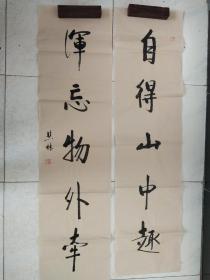 自得山中趣
渾忘物外牽